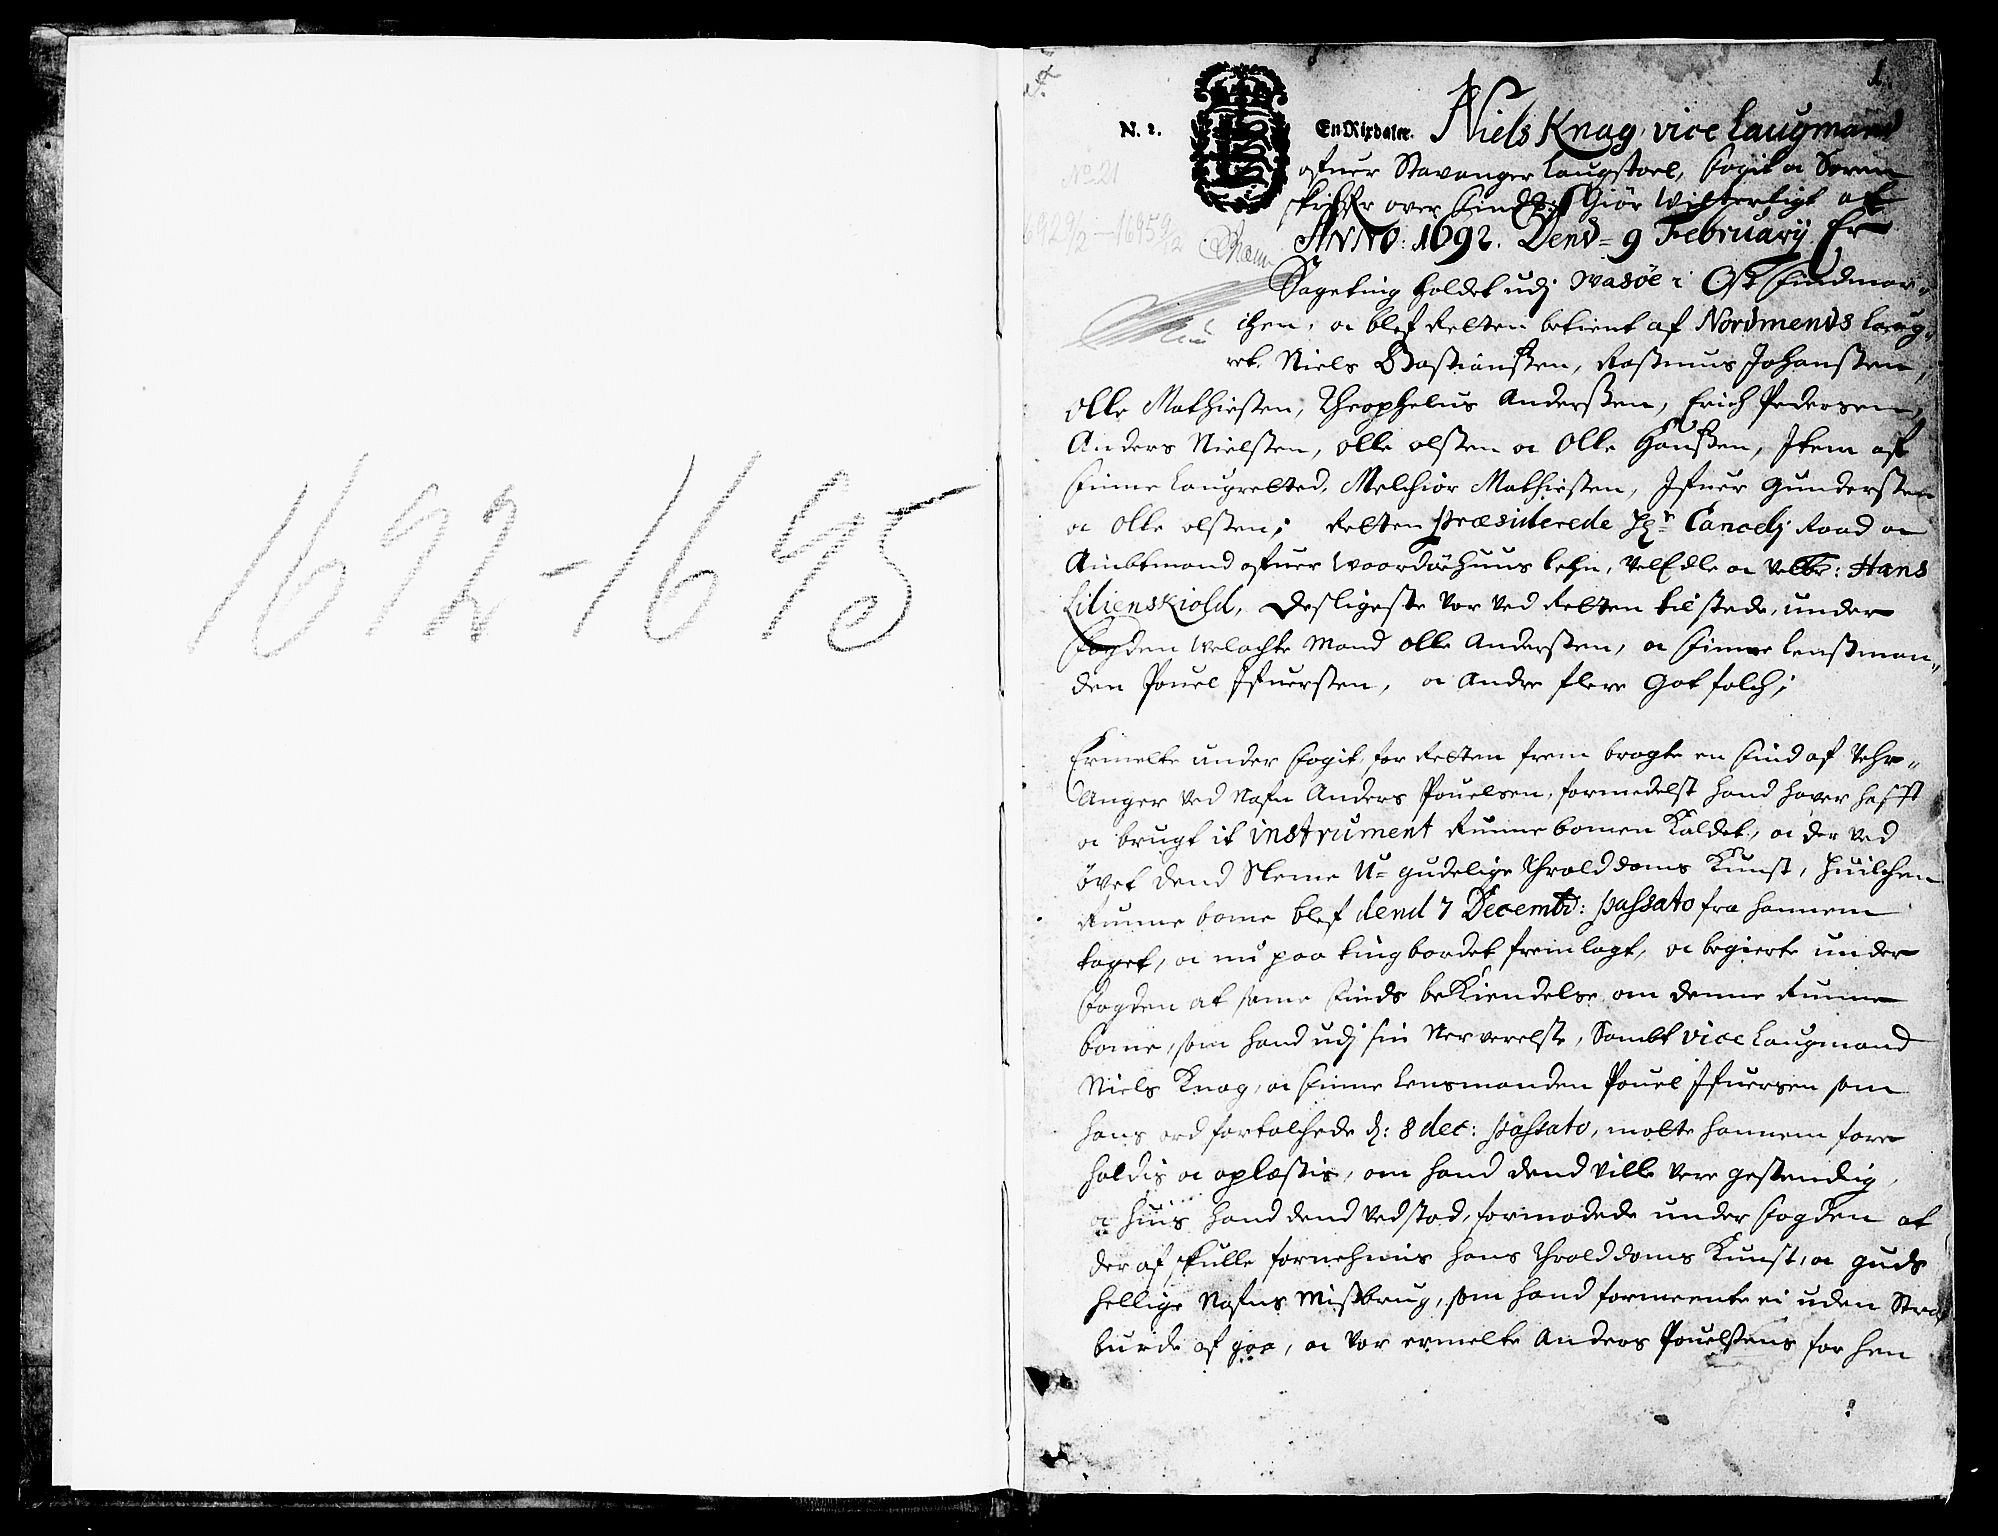 1692-1695
1.
N. 2.
En Rixdaler. Niels Knag, vice Laugmand
No 21
ofuer Stavanger Laugstoel, fogit oc Soren
skrifr over Findm: Giør Witterligt at
1692 9/2 – 1695 9/12
ANNO: 1692. Dend= 9 February Er
Sageting holdet udj Wasöe i Ost findmar-
chen, oc blef Retten betient af Nordmends Laug-
ret. Niels Bastianssen, Rasmus Johanssen,
Olle Mathiessen, Theophelus Anderssen, Erich Pedersen,
Anders Nielssen, Olle olssen oc Olle Hanssen, Item af
finne Laugretted, Melchior Mathiessen, Ifuer Gunderssen
oc Olle olssen; Retten præsiderede Hr: Cancelj Raad oc
Ambtmand ofuer Waardøehuus lehn, velEdle oc velbr: Hans
Lilienskiold, desligeste var ved Retten tilstede, under
fogden welachte Mand Olle Anderssen, oc finne lenssman-
den Pouel Ifuerssen, oc andre flere Got folch;
Ermelte under fogit, for Retten frem bragte en find af Vehr-
Anger ved Nafn Anders Pouelsen, formedelst hand haver hafft
oc brugt it instrument Runne bomen Kaldet, oc der ved
övet dend Sleme U= gudelige Throlddoms Kunst, huilchen
Runne bome blef dend 7 Decemb: passato fra hannem
taget, oc nu paa tingbordet fremlagt, oc begierte under
fogden at same finds beKiendelse om denne Runne
bome, som hand udj sin Nerverelse, sambt vice Laugmand
Niels Knag, oc finne Lensmanden Pouel Ifuersen som
hans ord fortolchede d: 8 dec: passato, motte hannem fore
holdis oc oplæssis, om hand dend ville vere gestendig,
oc huis hand dend vedstod, formodede under fogden at
der af skulle fornehmis hans Throlddoms Kunst, oc guds
hellige Nafns Missbrug, som hand formeente ei uden Straf
burde af gaa, oc var ermelte Anders Pouelssens for hen